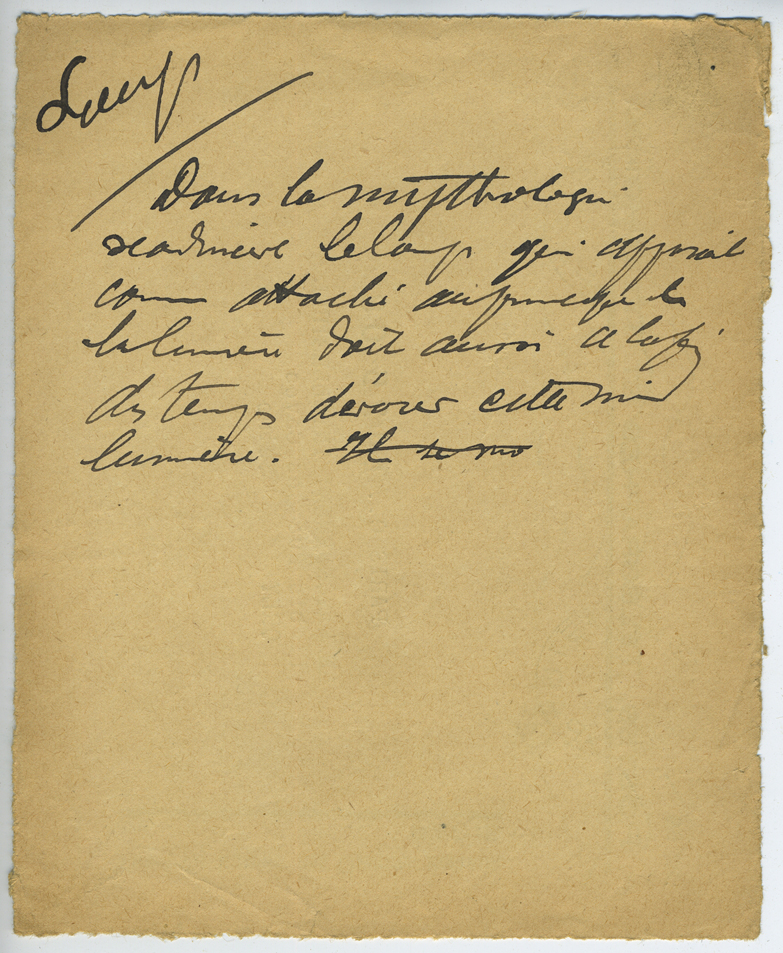 Loup
Dans la mythologie
scandinave le loup qui apparait
comme attaché au principe de
la lumière doit aussi à la fin
des temps dévorer cette
lumière. Il se